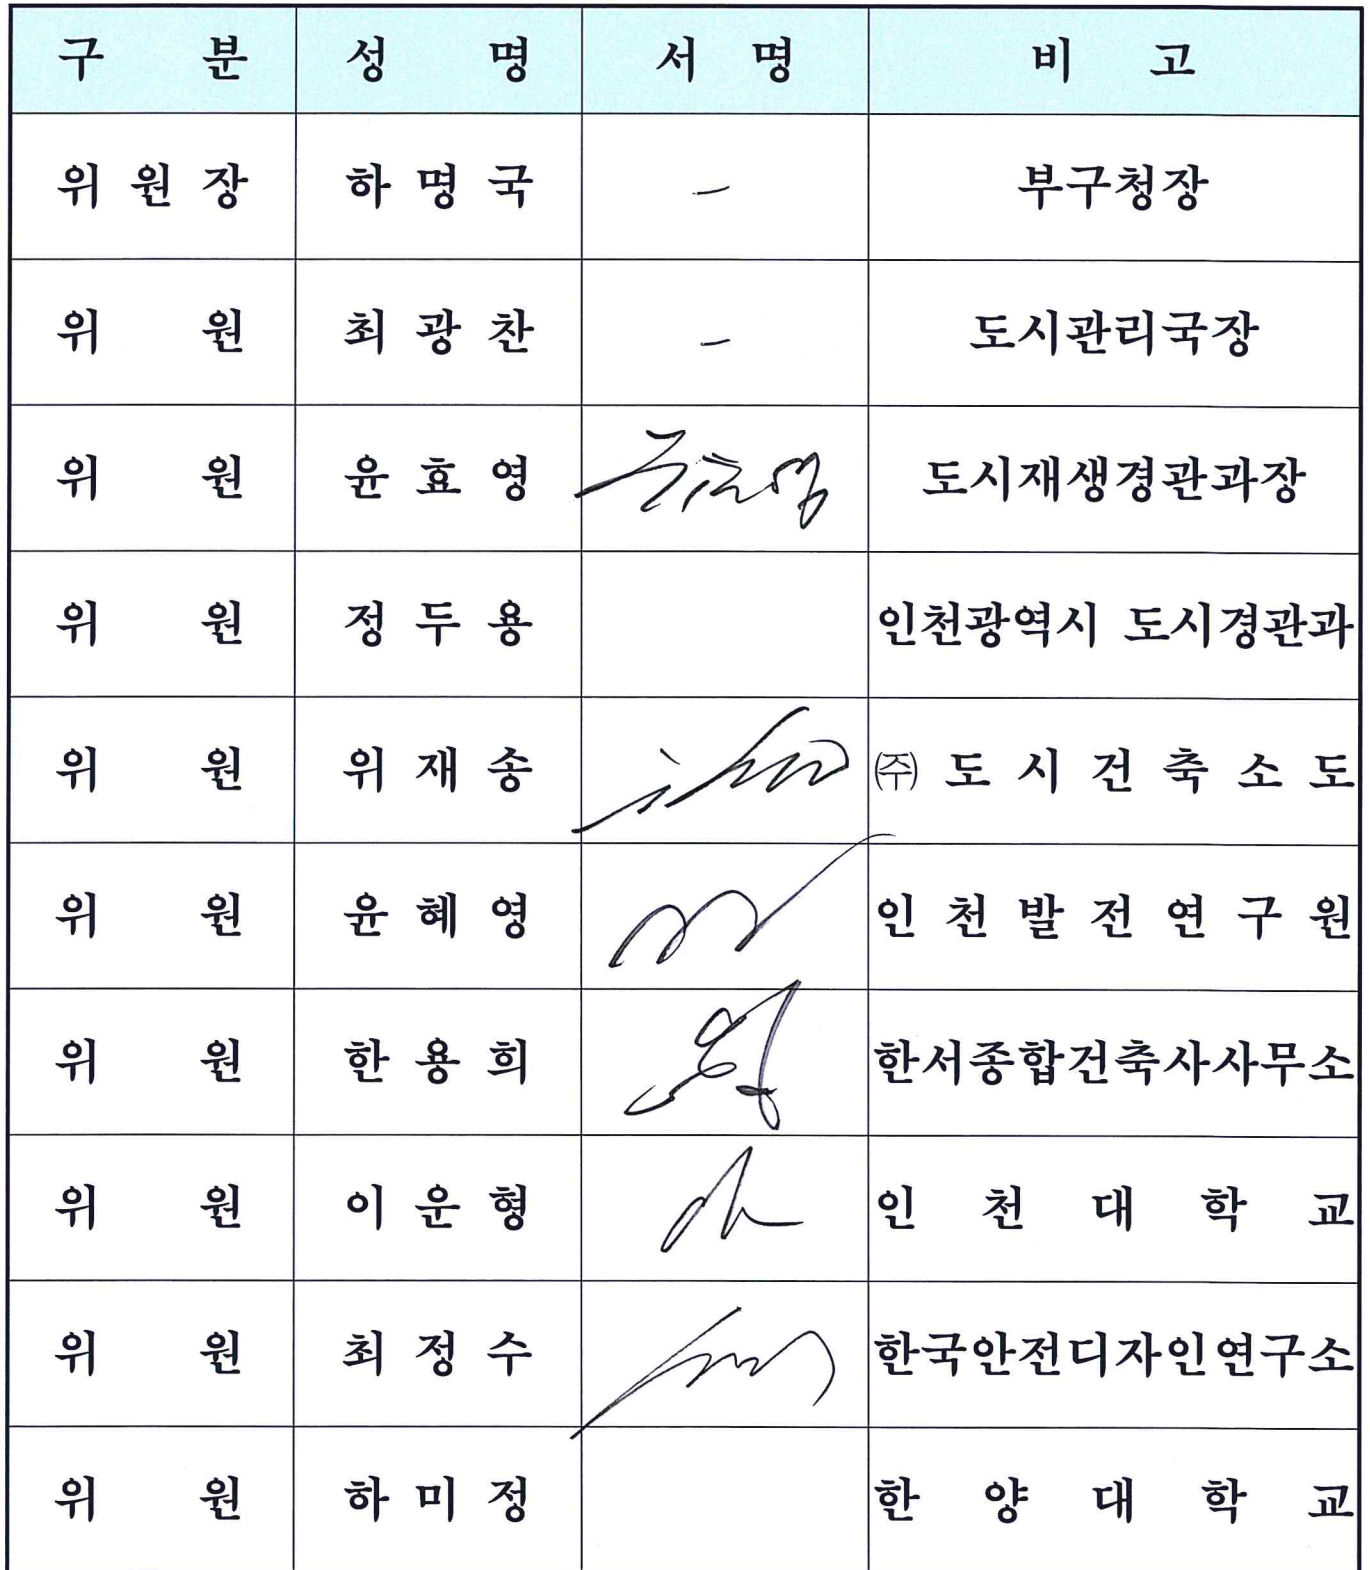 구 분 성 명 서 명 비 고
위 원 장 하 명 국 - 부구청장
위 원 최 광 찬 - 도시관리국장
위 원 윤 효 영 윤효영 도시재생경관과장
위 원 정 두 용 인천광역시 도시경관과
위 원 위 재 송 ㈜ 도 시 건 축 소 도
위 원 윤 혜 영 인 천 발 전 연 구 원
위 원 한 용 희 한서종합건축사사무소
위 원 이 운 형 인 천 대 학 교
위 원 최 정 수 한국안전디자인연구소
위 원 하 미 정 한 양 대 학 교